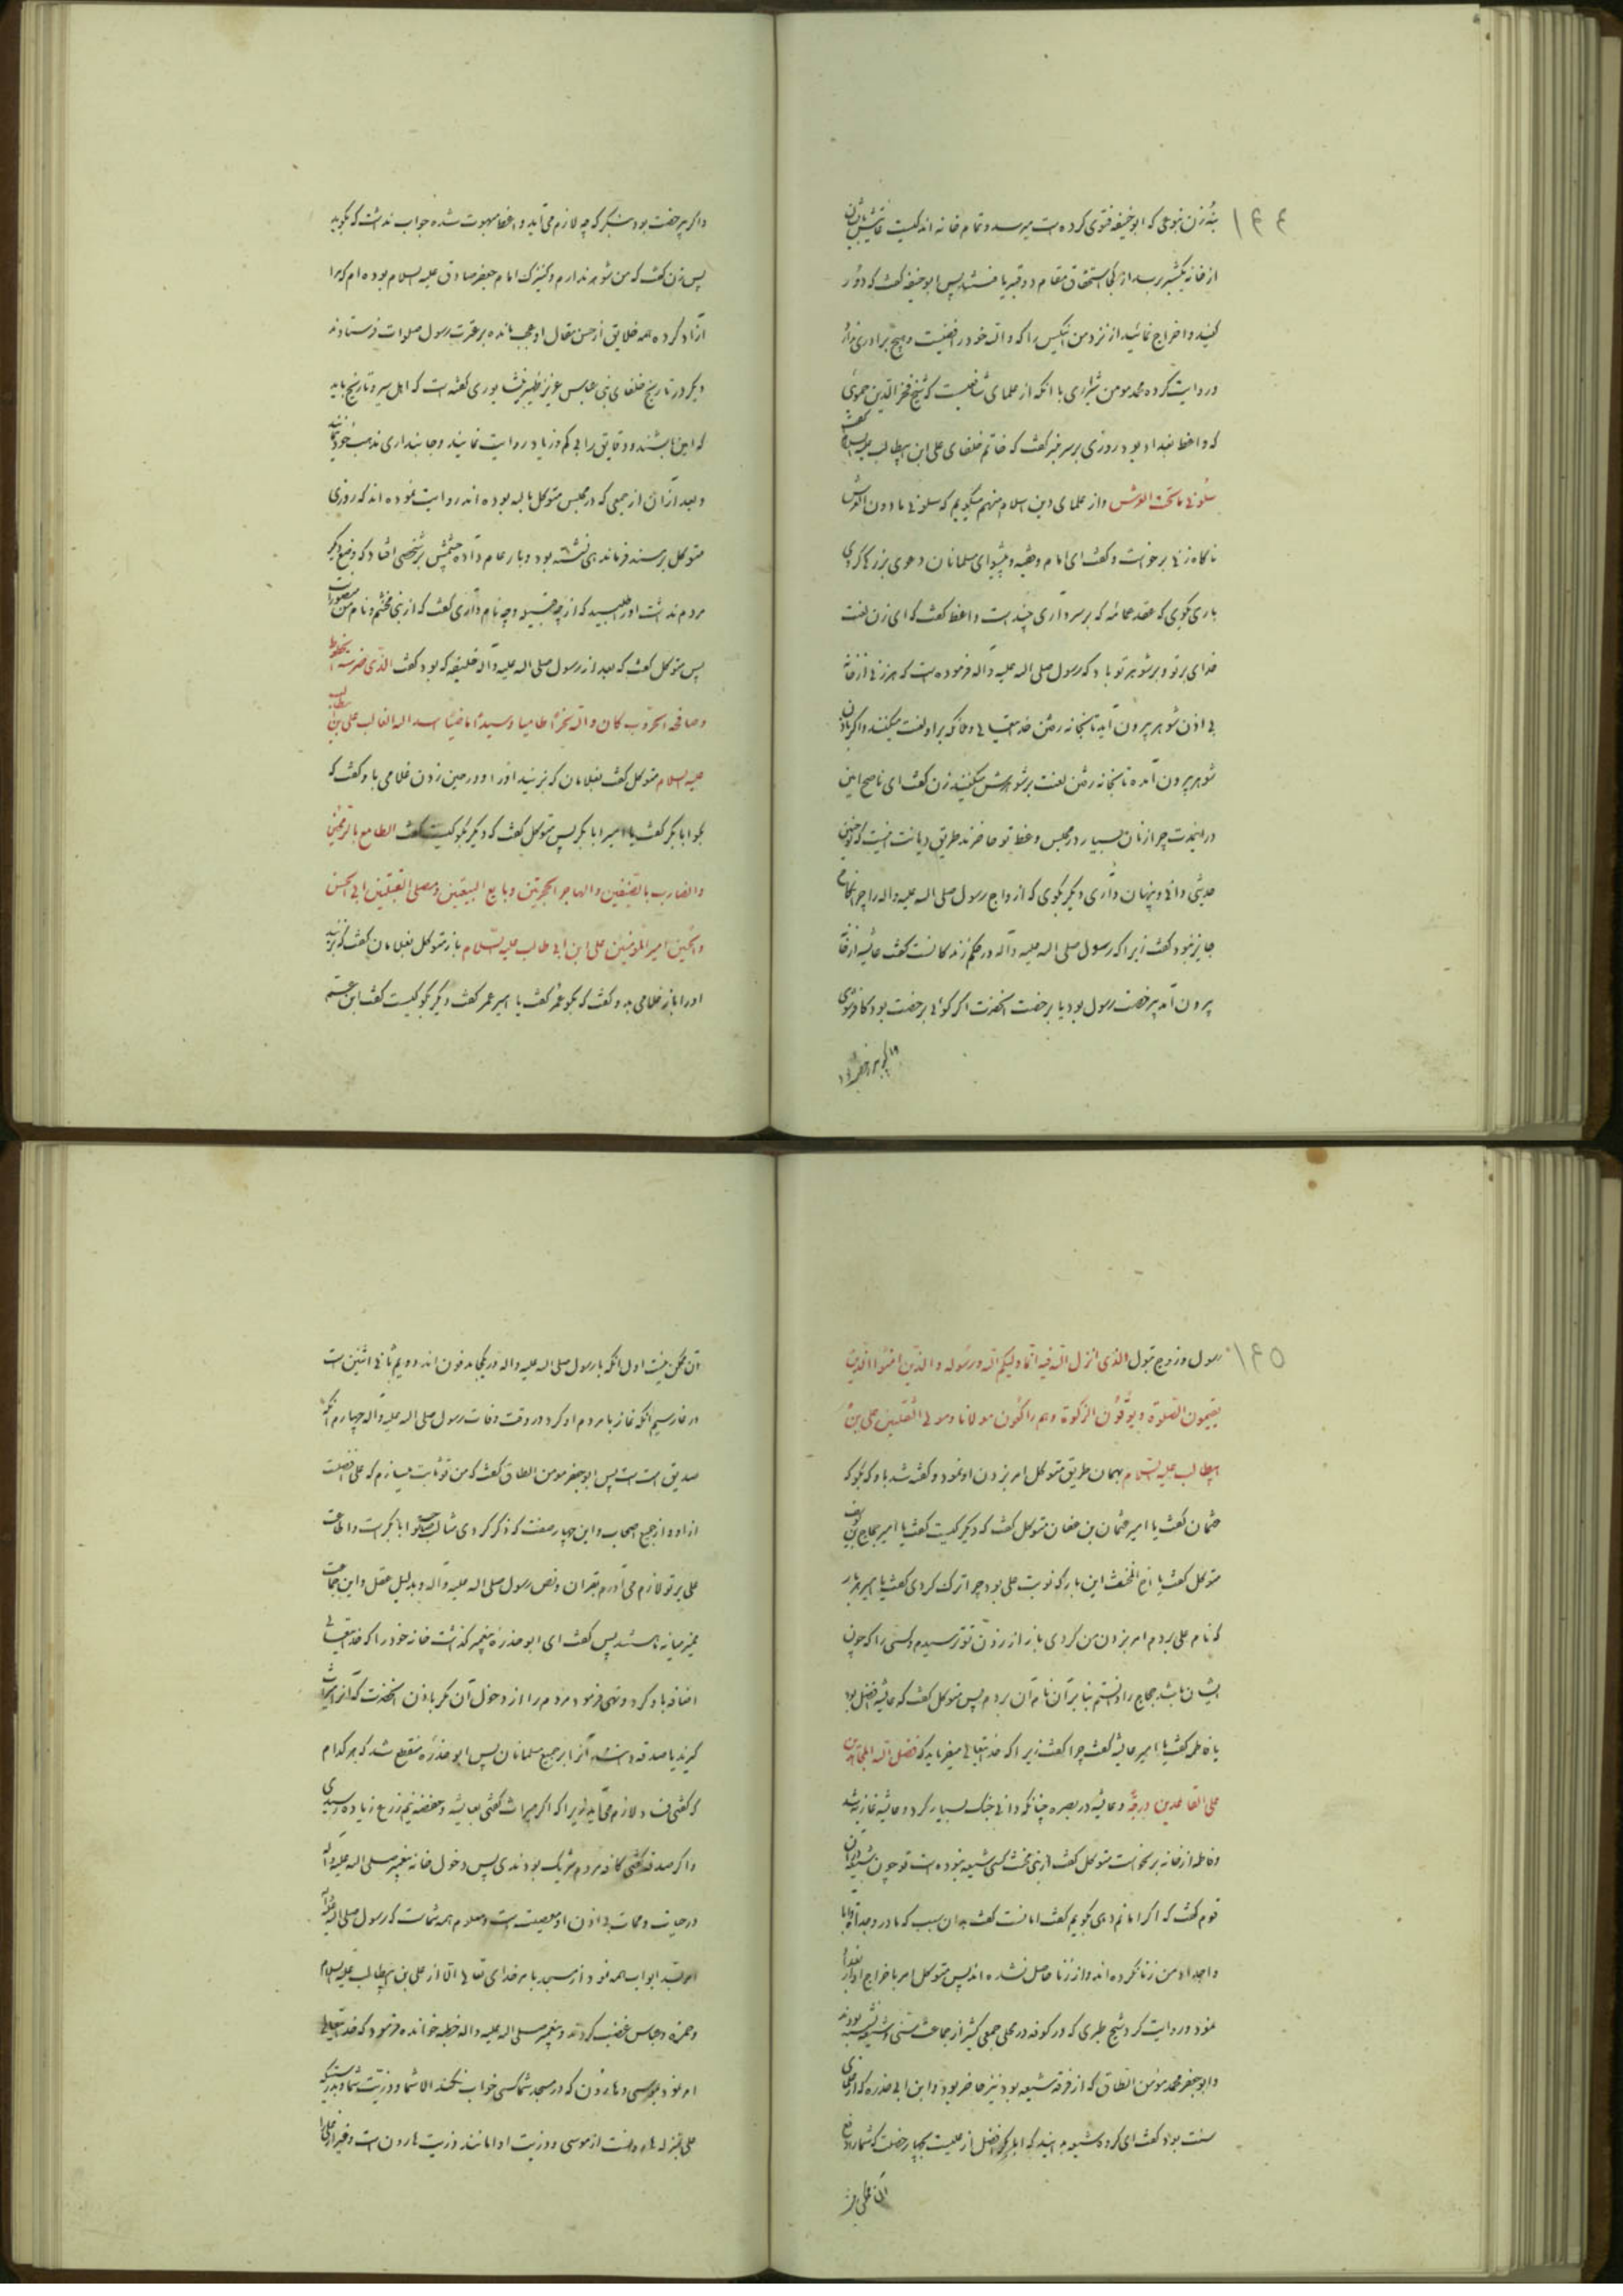 ۱۴۴
نه زن نبوعی که ابوحنیفه فتوی کرده است میرسد و تمام خانه اندکیست
از خانه یکشبر رسد از کجا استحقاق مقام دو قبر یافتند پس ابوحنیفه گفت که دور
کنید و اخراج نمائید از نزد من اینکس را که والله خود رافضیست و هیچ برادری ندارد
و روایت کرده محمد مومن شیرازی با انکه از علمای شافعیست که شیخ فخر الدین حموی
که واعظ بغداد بود روزی بر سر منبر گفت که خاتم خلفای علی ابن ابیطالب علیه السلام گفت
سلونی ما تحت العرش و از علمای دین اسلام منهم میگویم که سلونی ما دون العرش
ناگاه زنی برخواست و گفت ای امام وفقیه و پیشوای مسلمانان دعوی بزرگ کردی
باری بگوی که عقد عمامه که بر سر داری چند است واعظ گفت که ای زن لعنت
خدای بر تو و بر شوهر تو باد که رسول صلی الله علیه و اله فرموده است که هر زنی از خانه
بی اذن شوهر بیرون آید تا بخانه رفتن خدایتعالی و ملائکه بر او لعنت میکنند و اگر باذن
شوهر بیرون آمده تا بخانه رفتن لعنت بر شوهرش میکنند زن گفت ای ناصح امین
در اینمدت چرا زنان بسیار در مجلس وعظ تو حاضرند طریق دیانت نیست که چنین
حدیثی دانی و پنهان داری دیگر بگوی که ازواج رسول صلی الله علیه واله را چرا نکاح
جایز نبود گفت زیرا که رسول صلی الله علیه و آله در حکم زندگانست گفت عایشه از خانه
بیرون آمد برخصت رسول بود یا برخصت انحضرت اگر گوئی برخصت بود کافر شوی
و اگر بیرخصت
و اگر بیرخصت بود بنگر که چه لازم می آید واعظ مبهوت شده جواب نداشت که بگوید
پس زن گفت که من شوهر ندارم و کنیزک امام جعفر صادق علیه السلام بوده ام که مرا
آزاد کرده همه خلایق از حسن مقال او عجب مانده بر عترت رسول صلوات فرستادند
دیگر در تاریخ خلفای بنی عباس عزیز ظهیر نیشابوری گفته است که اهل سیر و تاریخ باید
که امین باشند و دقایق را بی کم و زیاد روایت نمایند و جانبداری مذهب خود نکنند
و بعد از ان از جمعی که در مجلس متوکل بالله بوده اند روایت نموده اند که روزی
متوکل بر مسند فرماندهی نشسته بود و بار عام داده چشمش بر شخصی افتاد که وضع دیگر
مردم نداشت او را طلبید که از چه قبیله و چه نام داری گفت که از بنی مخنثم و نام من
پس متوکل گفت که بعد از رسول صلی الله علیه و آله خلیفه که بود گفت الذی
علیه السلام متوکل گفت بغلامان که بزنید او را و در حین زدن غلامی باو گفت که
بگو ابابکر گفت یا امیر ابابکر پس متوکل گفت که دیگر بگو کیست گفت الطاعن بالرمحین
والضارب بالسیفین والمهاجر الهجرتین وبایع البیعتین ومصلی القبلتین ابی الحسن
والحسین امیر المومنین علی ابن ابی طالب علیه السلام باز متوکل بغلامان گفت که بزنید
او را باز غلامی بدو گفت که بگو عمر گفت یا امیر عمر گفت دیگر بگو کیست گفت ابن عم
۱۴۵
رسول و زوج بتول الذی انزل الله فیه انما ولیکم الله ورسوله والذین امنوا الذین
یقیمون الصلوة ویؤتون الزکوة وهم راکعون مولانا ومولی الثقلین علی بن
ابیطالب علیه السلام بهمان طریق متوکل امر بزدن او نمود و گفته شد باو که بگو که
عثمان گفت یا امیر عثمان بن عفان متوکل گفت که دیگر کیست گفت یا امیر حجاج بن یوسف
متوکل گفت یا المخنث این بار که نوبت علی بود چرا ترک کردی گفت یا امیر هر بار
که نام علی بردم امر بزدن من کردی باز از زدن تو ترسیدم و کسی را که چون
ایشان باشد حجاج را دانستم بنابر آن نام آن بردم پس متوکل گفت که عایشه افضل بود
یا فاطمه گفت یا امیر عایشه گفت چرا گفت زیرا که خدایتعالی میفرماید که فضل الله المجاهدین
علی القاعدین درجة و عایشه در بصره چنانکه دانی جنگ بسیار کرد و عایشه غازیه شد
و فاطمه از خانه برنخواست متوکل گفت از بنی مخنث کسی شیعه نبوده است تو چون شیعه
قوم گفت که اگر امانم دهی بگویم گفت امانست گفت بدان سبب که مادر و جدات و ابا
و اجداد من زنا نکرده اند و از زنا حاصل نشده اند پس متوکل امر باخراج او از بغداد
نمود و روایت کرد شیخ طبری که در کوفه در محلی جمعی کثیر از جماعت سنی و شیعه نشسته بودند
و ابو جعفر محمد مؤمن الطاق که از فرقه شیعه بود نیز حاضر بود و ابن ابی حذره که از علمای
سنت بود گفت ای گروه شیعه بدانید که ابابکر افضل از علیست بچهار خصلت که شما را دفع
آن ممکن نیست
آن ممکن نیست اول انکه با رسول صلی الله علیه واله در یکجا مدفون اند دویم ثانی اثنین است
در غار سیم انکه نماز با مردم او کرد در وقت وفات رسول صلی الله علیه واله چهارم انکه
صدیق امت است پس ابو جعفر مومن الطاق گفت که من تو ثابت میسازم که علی افضلست
از او و از جمیع اصحاب و این چهار صفت که ذکر کردی مثالب ابابکر است و اطاعت
علی بر تو لازم می آورم بقران و نص رسول صلی الله علیه واله و بدلیل عقل و این جماعت
ممیز میانه باشند پس گفت ای ابو حذره پیغمبر گذشت خانه خود را که خدایتعالی
اضافه باو کرد و نهی فرمود مردم را از دخول آن مگر باذن انحضرت که آنرا میراث
گیرند یا صدقه دانند آنرا بر جمیع مسلمانان پس ابو حذره منقطع شد که هر کدام
که گفتی فساد لازم می آید زیرا که اگر میراث گفتی بعایشه و حفصه نیم زرع زیاده نرسیدی
و اگر صدقه گفتی کافه مردم شریک بودندی پس دخول خانه پیغمبر صلی الله علیه واله
در حیات و ممات بی اذن او معصیت است و معلوم همه شماست که رسول صلی الله علیه واله
امر بسد ابواب همه نمود از مسجد بامر خدای تعالی الا از علی بن ابیطالب علیه السلام
و حمزه و عباس غضب کردند و پیغمبر صلی الله علیه واله خطبه خوانده فرمود که خدایتعالی
امر نمود بموسی و هارون که در مسجد شما کسی خواب نکند الا شما و ذریت شما و بدرستیکه
علی بمنزله هارونست از موسی و ذریت او مانند ذریت هارون است و غیر از علی را